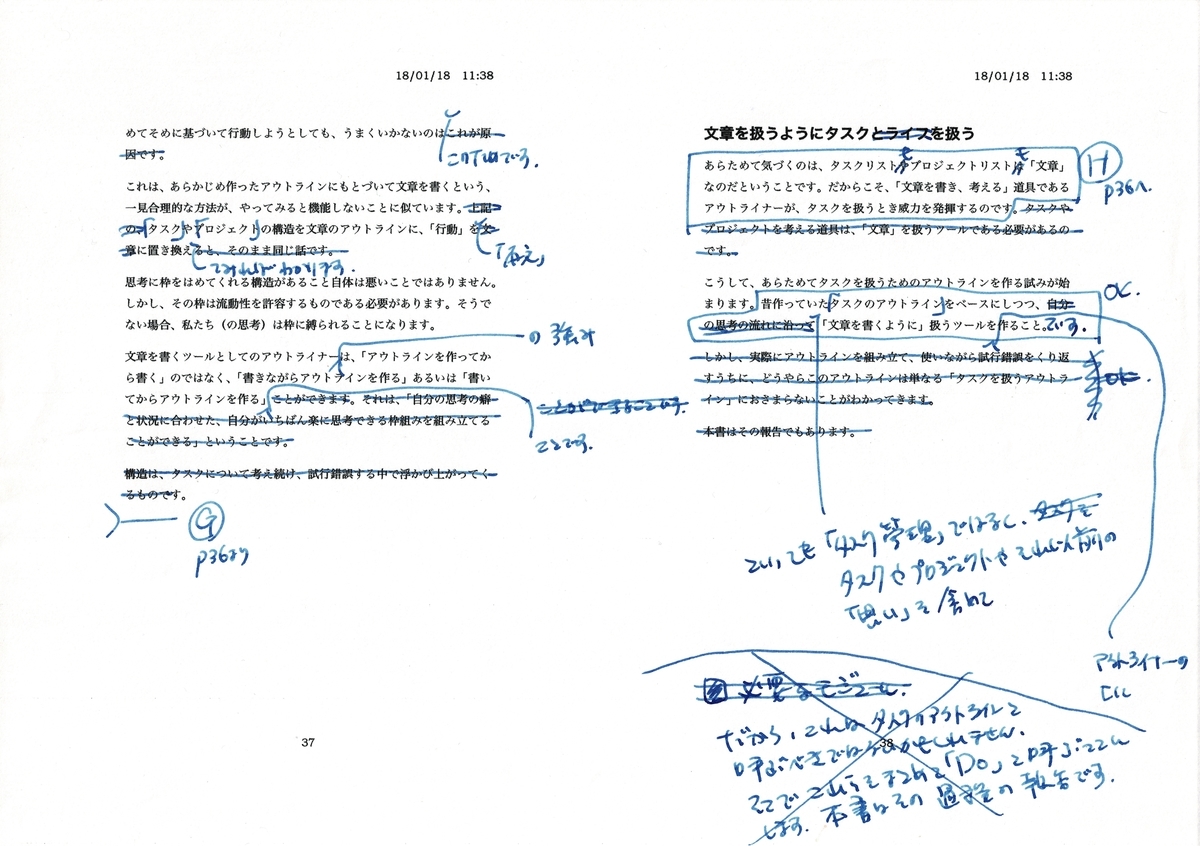 18/01/18 11:38
めてそめに基づいて行動しようとしても、うまくいかないのはこれが原
因です。
このためです。
これは、あらかじめ作ったアウトラインにもとづいて文章を書くという、
一見合理的な方法が、やってみると機能しないことに似ています。上記
の「タスクやプロジェクト」の構造を文章のアウトラインに、「行動」を文
章に置き換えると、そのまま同じ話です。
てみればわかります。
思考に枠をはめてくれる構造があること自体は悪いことではありません。
しかし、その枠は流動性を許容するものである必要があります。そうで
ない場合、私たち（の思考）は枠に縛られることになります。
の強み
文章を書くツールとしてのアウトライナーは、「アウトラインを作ってか
ら書く」のではなく、「書きながらアウトラインを作る」あるいは「書い
てからアウトラインを作る」ことができます。それは、「自分の思考の癖
と状況に合わせた、自分がいちばん楽に思考できる枠組みを組み立てる
ことができる」ということです。
ことです。
構造は、タスクについて考え続け、試行錯誤する中で浮かび上がってく
るものです。
G
p36より
37
18/01/18 11:38
文章を扱うようにタスクとライフを扱う
あらためて気づくのは、タスクリストやプロジェクトリストは「文章」
なのだということです。だからこそ、「文章を書き、考える」道具である
アウトライナーが、タスクを扱うとき威力を発揮するのです。タスクや
プロジェクトを考える道具は、「文章」を扱うツールである必要があるの
です。
も
も
H
p36へ
こうして、あらためてタスクを扱うためのアウトラインを作る試みが始
まります。昔作っていた「タスクのアウトライン」をベースにしつつ、自分
の思考の流れに沿って「文章を書くように」扱うツールを作ること。です。
OK.
しかし、実際にアウトラインを組み立て、使いながら試行錯誤をくり返
すうちに、どうやらこのアウトラインは単なる「タスクを扱うアウトラ
イン」におさまらないことがわかってきます。
本書はその報告でもあります。
といっても「タスク管理」ではなく、タスクを
タスクやプロジェクトやそれ以前の
「思い」を含めて
アウトライナーの
だから、これはタスクのアウトラインと
呼ぶべきではないかもしれません。
そこでこれらをまとめて「Do」と呼ぶことに
します。本書はその過程の報告です。
38